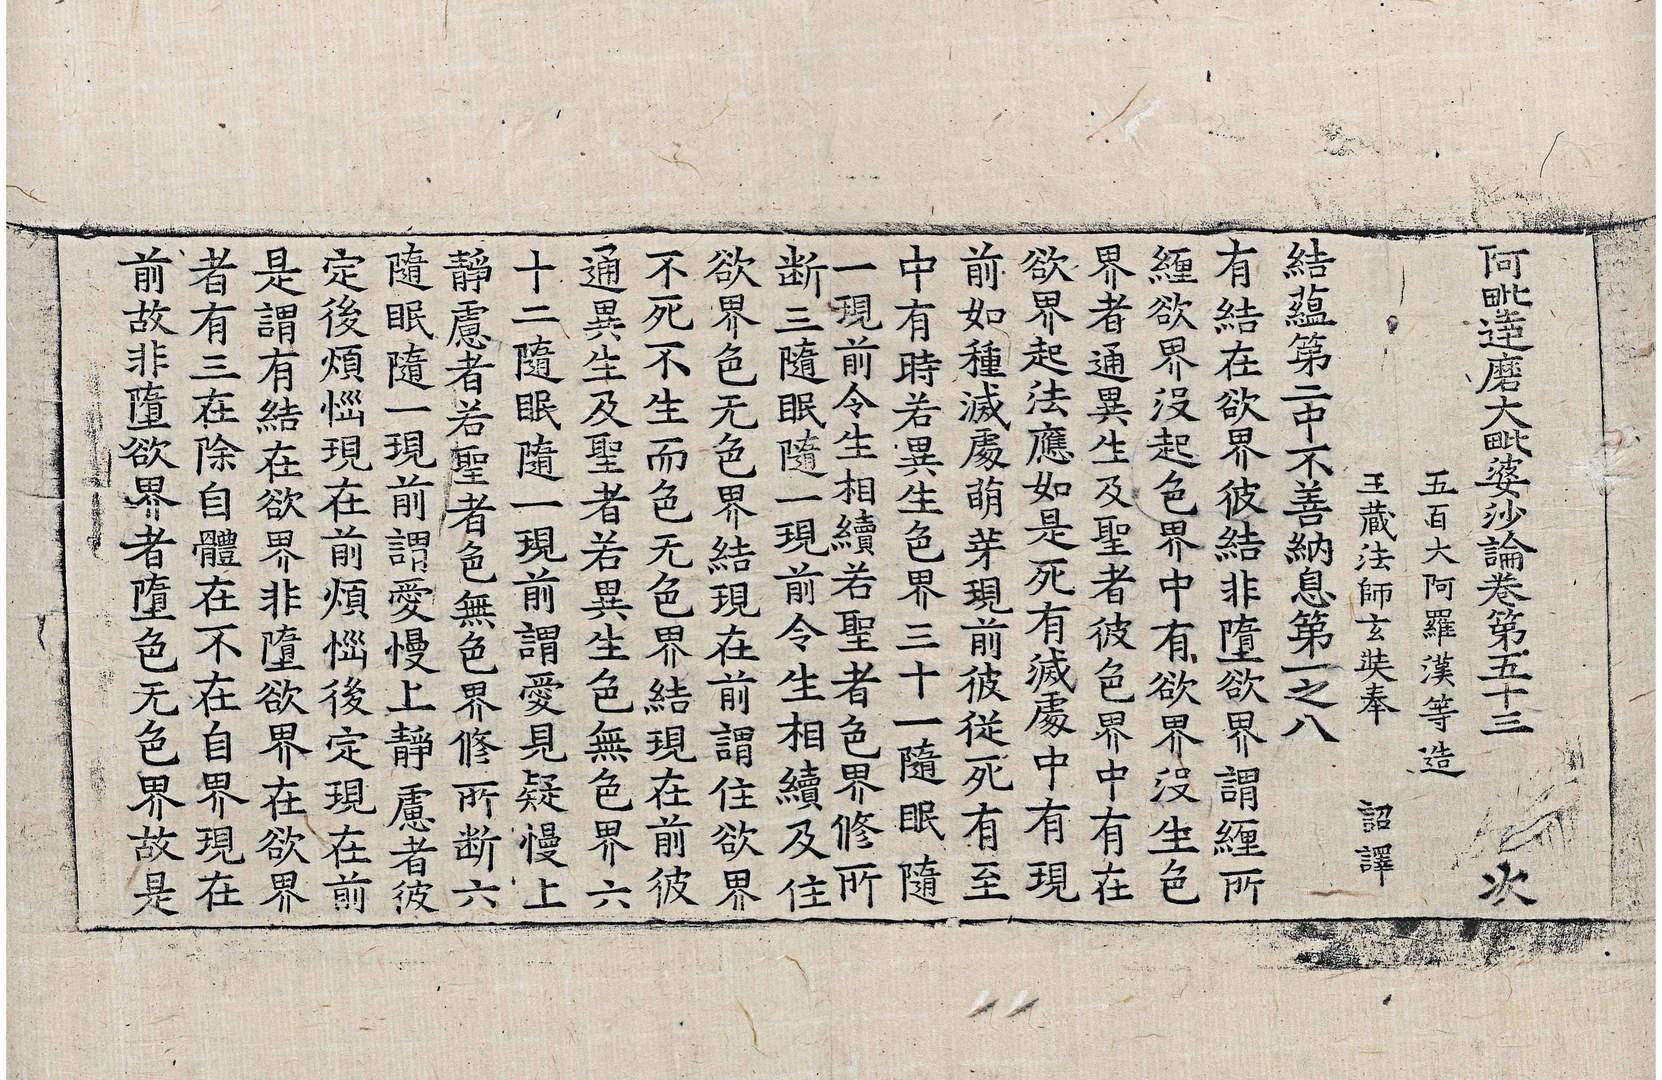 阿毗達磨大毗婆沙論卷第五十三　次
五百大阿羅漢等造
三藏法師玄奘奉　詔譯
結蘊第二中不善納息第一之八
有結在欲界彼結非墮欲界謂纏所
纏欲界沒起色界中有欲界沒生色
界者通異生及聖者彼色界中有在
欲界起法應如是死有滅處中有現
前如種滅處萌芽現前彼従死有至
中有時若異生色界三十一隨眠隨
一現前令生相續若聖者色界修所
断三隨眠隨一現前令生相續及住
欲界色无色界結現在前謂住欲界
不死不生而色无色界結現在前彼
通異生及聖者若異生色無色界六
十二隨眠隨一現前謂愛見疑慢上
靜慮者若聖者色無色界修所断六
隨眠隨一現前謂愛慢上靜慮者彼
定後煩惱現在前煩惱後定現在前
是謂有結在欲界非墮欲界在欲界
者有三在除自體在不在自界現在
前故非墮欲界者墮色无色界故是